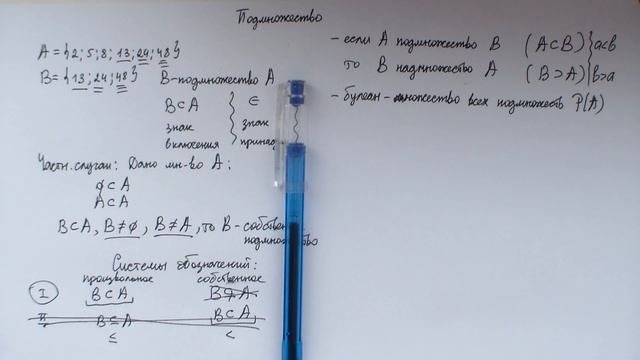 Подмножество
A = {2; 5; 8; 13; 24; 48}
B = {13; 24; 48} B-подмножество A
B⊂A ∈
знак знак
включения принад
Частн. случаи: Дано мн-во A:
∅⊂A
A⊂A
B⊂A, B≠∅, B≠A, то B-собствен
подмножество
Системы обозначений:
произвольное собственное
I B⊂A B⊊A
II. B⊆A B⊂A
≤ <
- если A подмножество B (A⊂B) } a<b
то B надмножество A (B⊃A) } b>a
- булеан - множество всех подмножеств P(A)